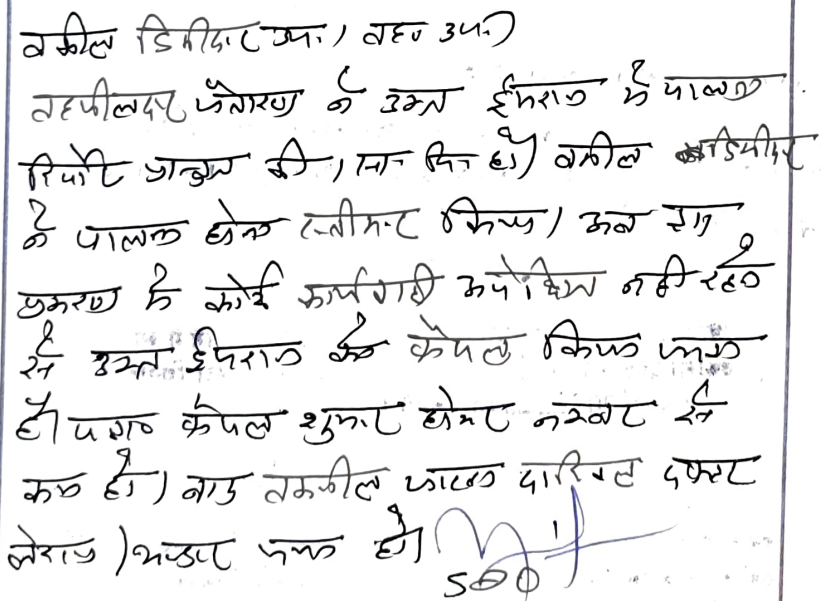 वकील डिक्रीदार उप.। तहत उप.।
तहसीलदार जैतारण ने उक्त ईजराय में पालना
रिपोर्ट प्रस्तुत की। शा. मि. हो। वकील डिक्रीदार
ने पालना होना स्वीकार किया। अब इस
प्रकरण में कोई कार्यवाही अपेक्षित नहीं रहने
से उक्त ईजराय को फैसल किया जाता
है। पत्रा० फैसल शुमार होकर नम्बर से
कम हो। बाद तकमील फाईल दाखिल दफ्तर
लेवे।
SDO